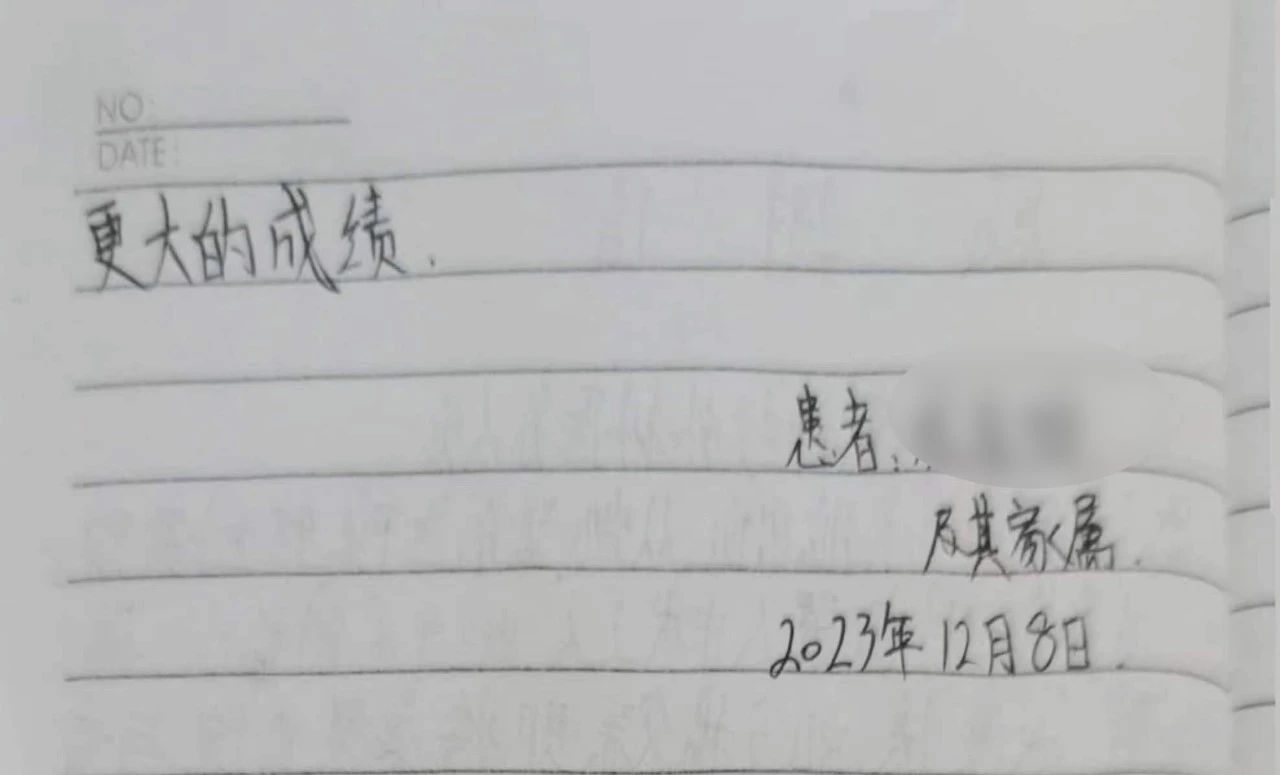 NO:
DATE:
更大的成绩.
患者:
及其家属.
2023年12月8日.